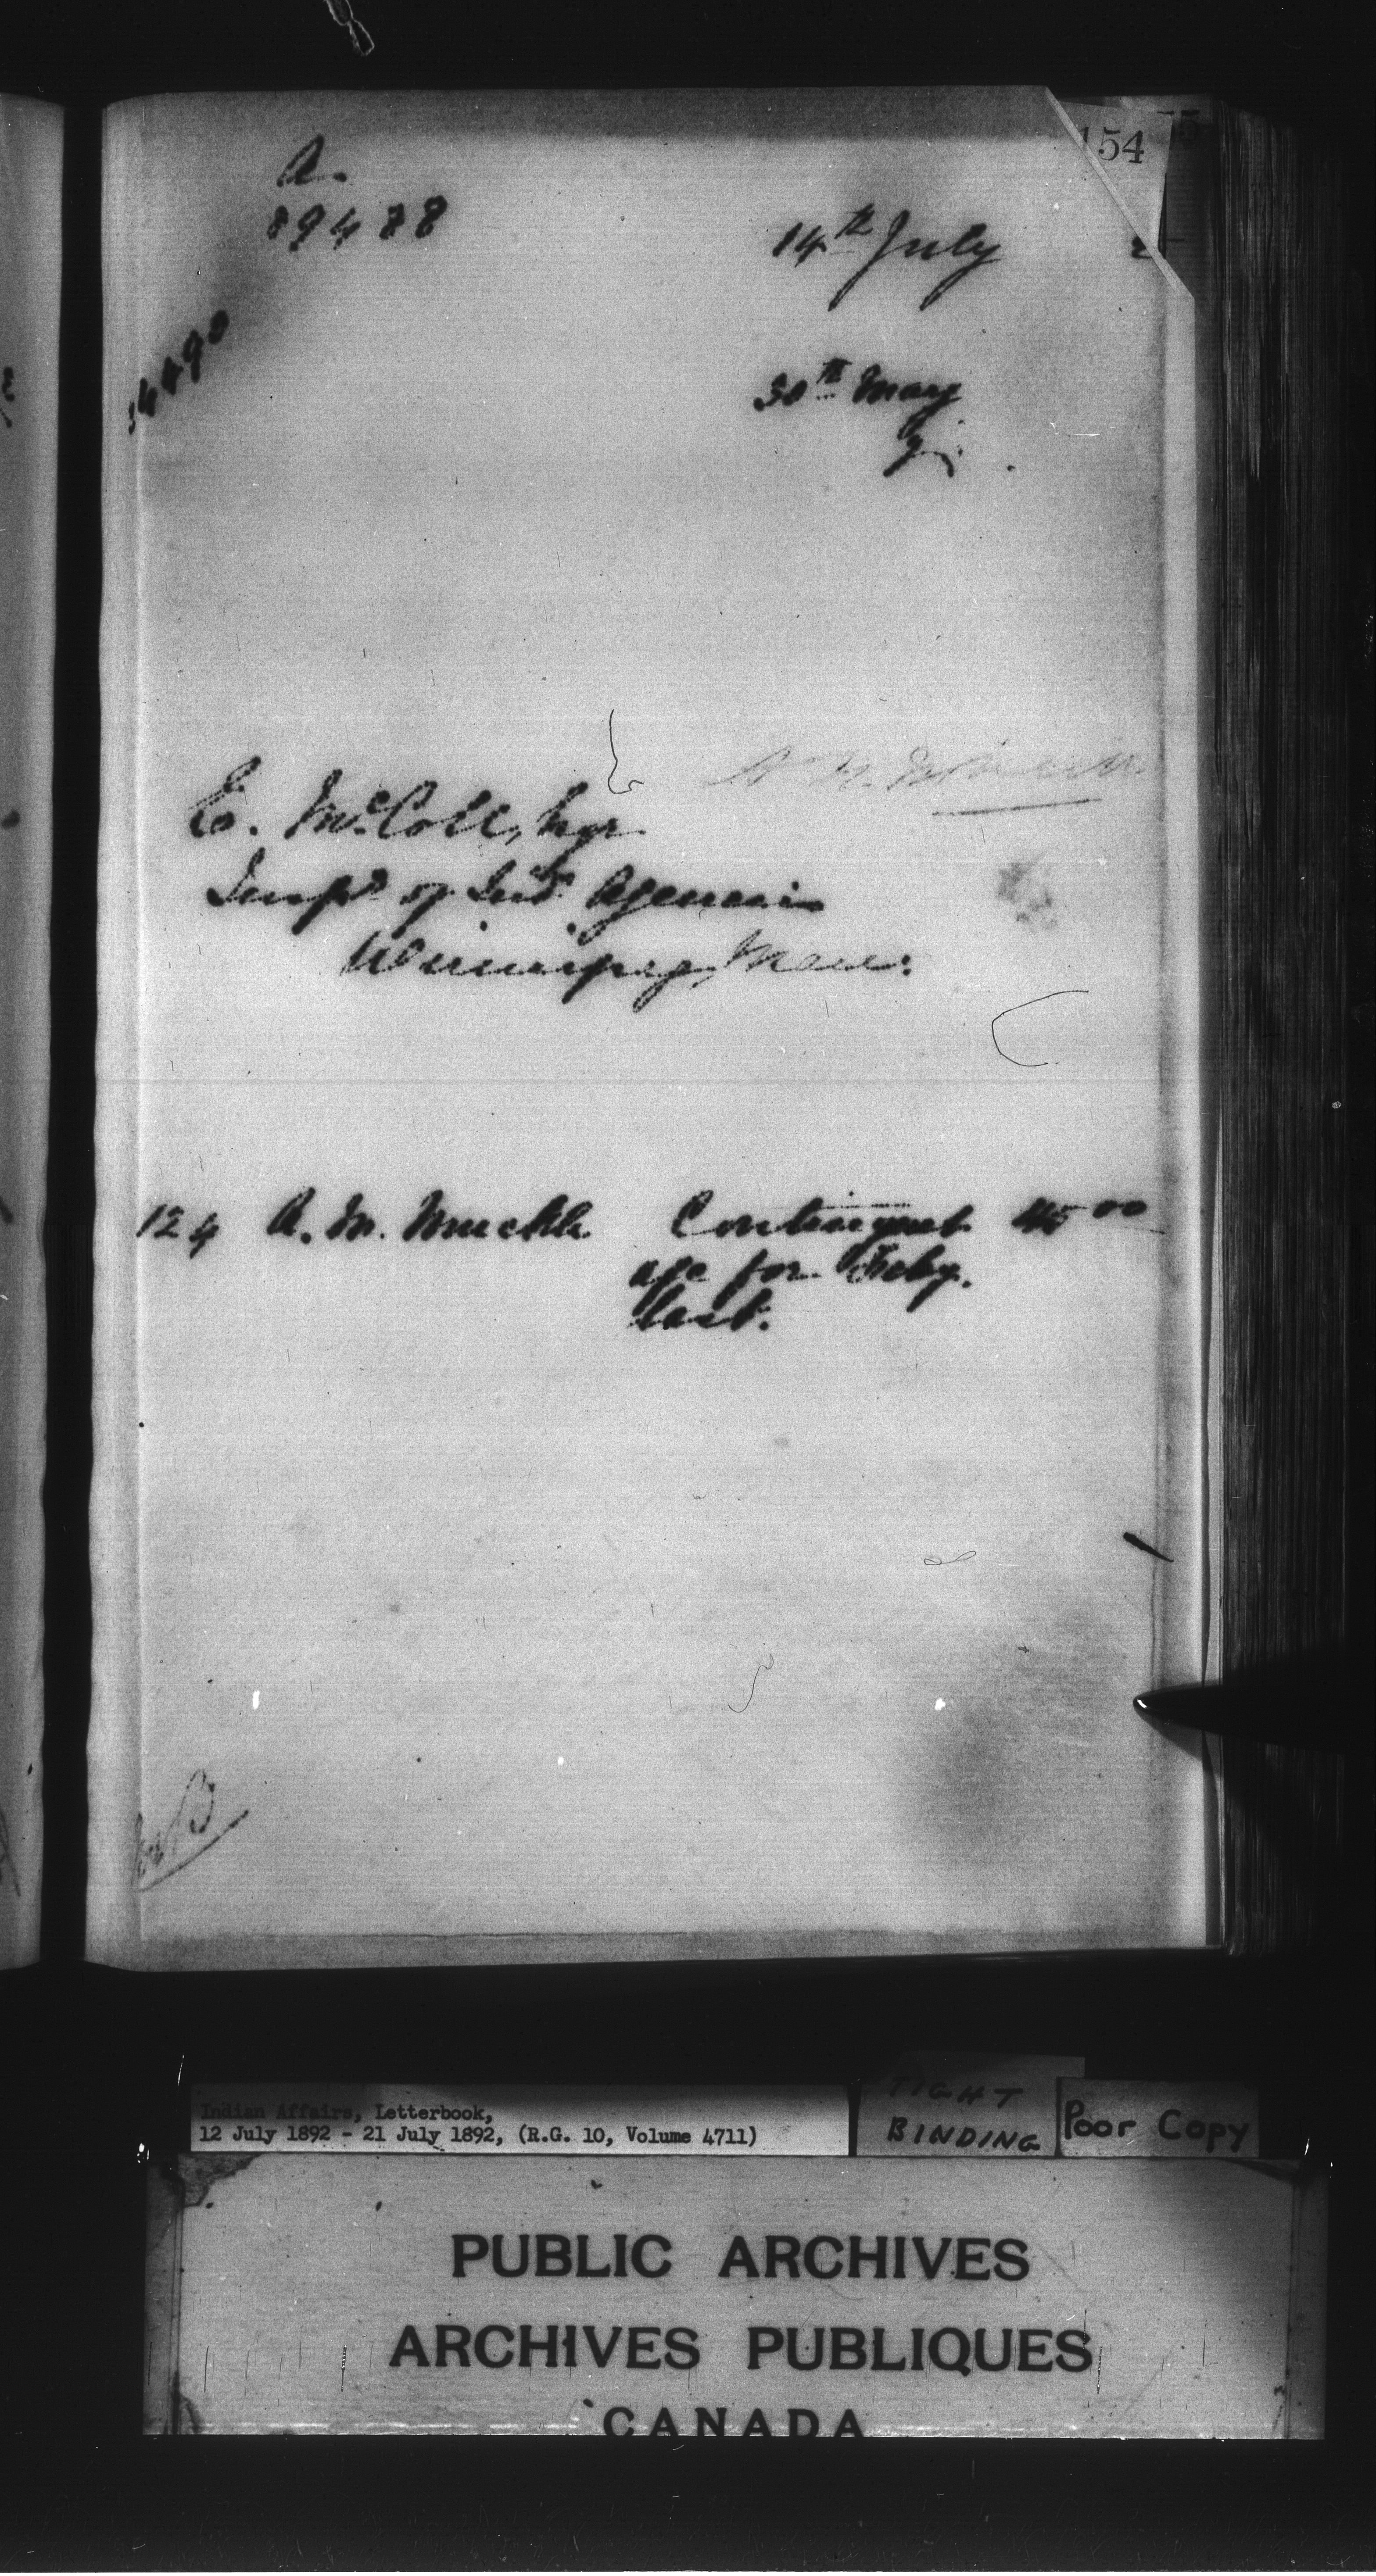 154
A.
89488
14th July 2
30th May
E. McColl, Esqr.
Inspr of Ind. Agencies
Winnipeg, Man:
124 A. M. Muckle Contingent 45 00
a/c for Feby.
last.
Indian Affairs, Letterbook,
12 July 1892 - 21 July 1892, (R.G. 10, Volume 4711)
TIGHT
BINDING
Poor Copy
PUBLIC ARCHIVES
ARCHIVES PUBLIQUES
CANADA